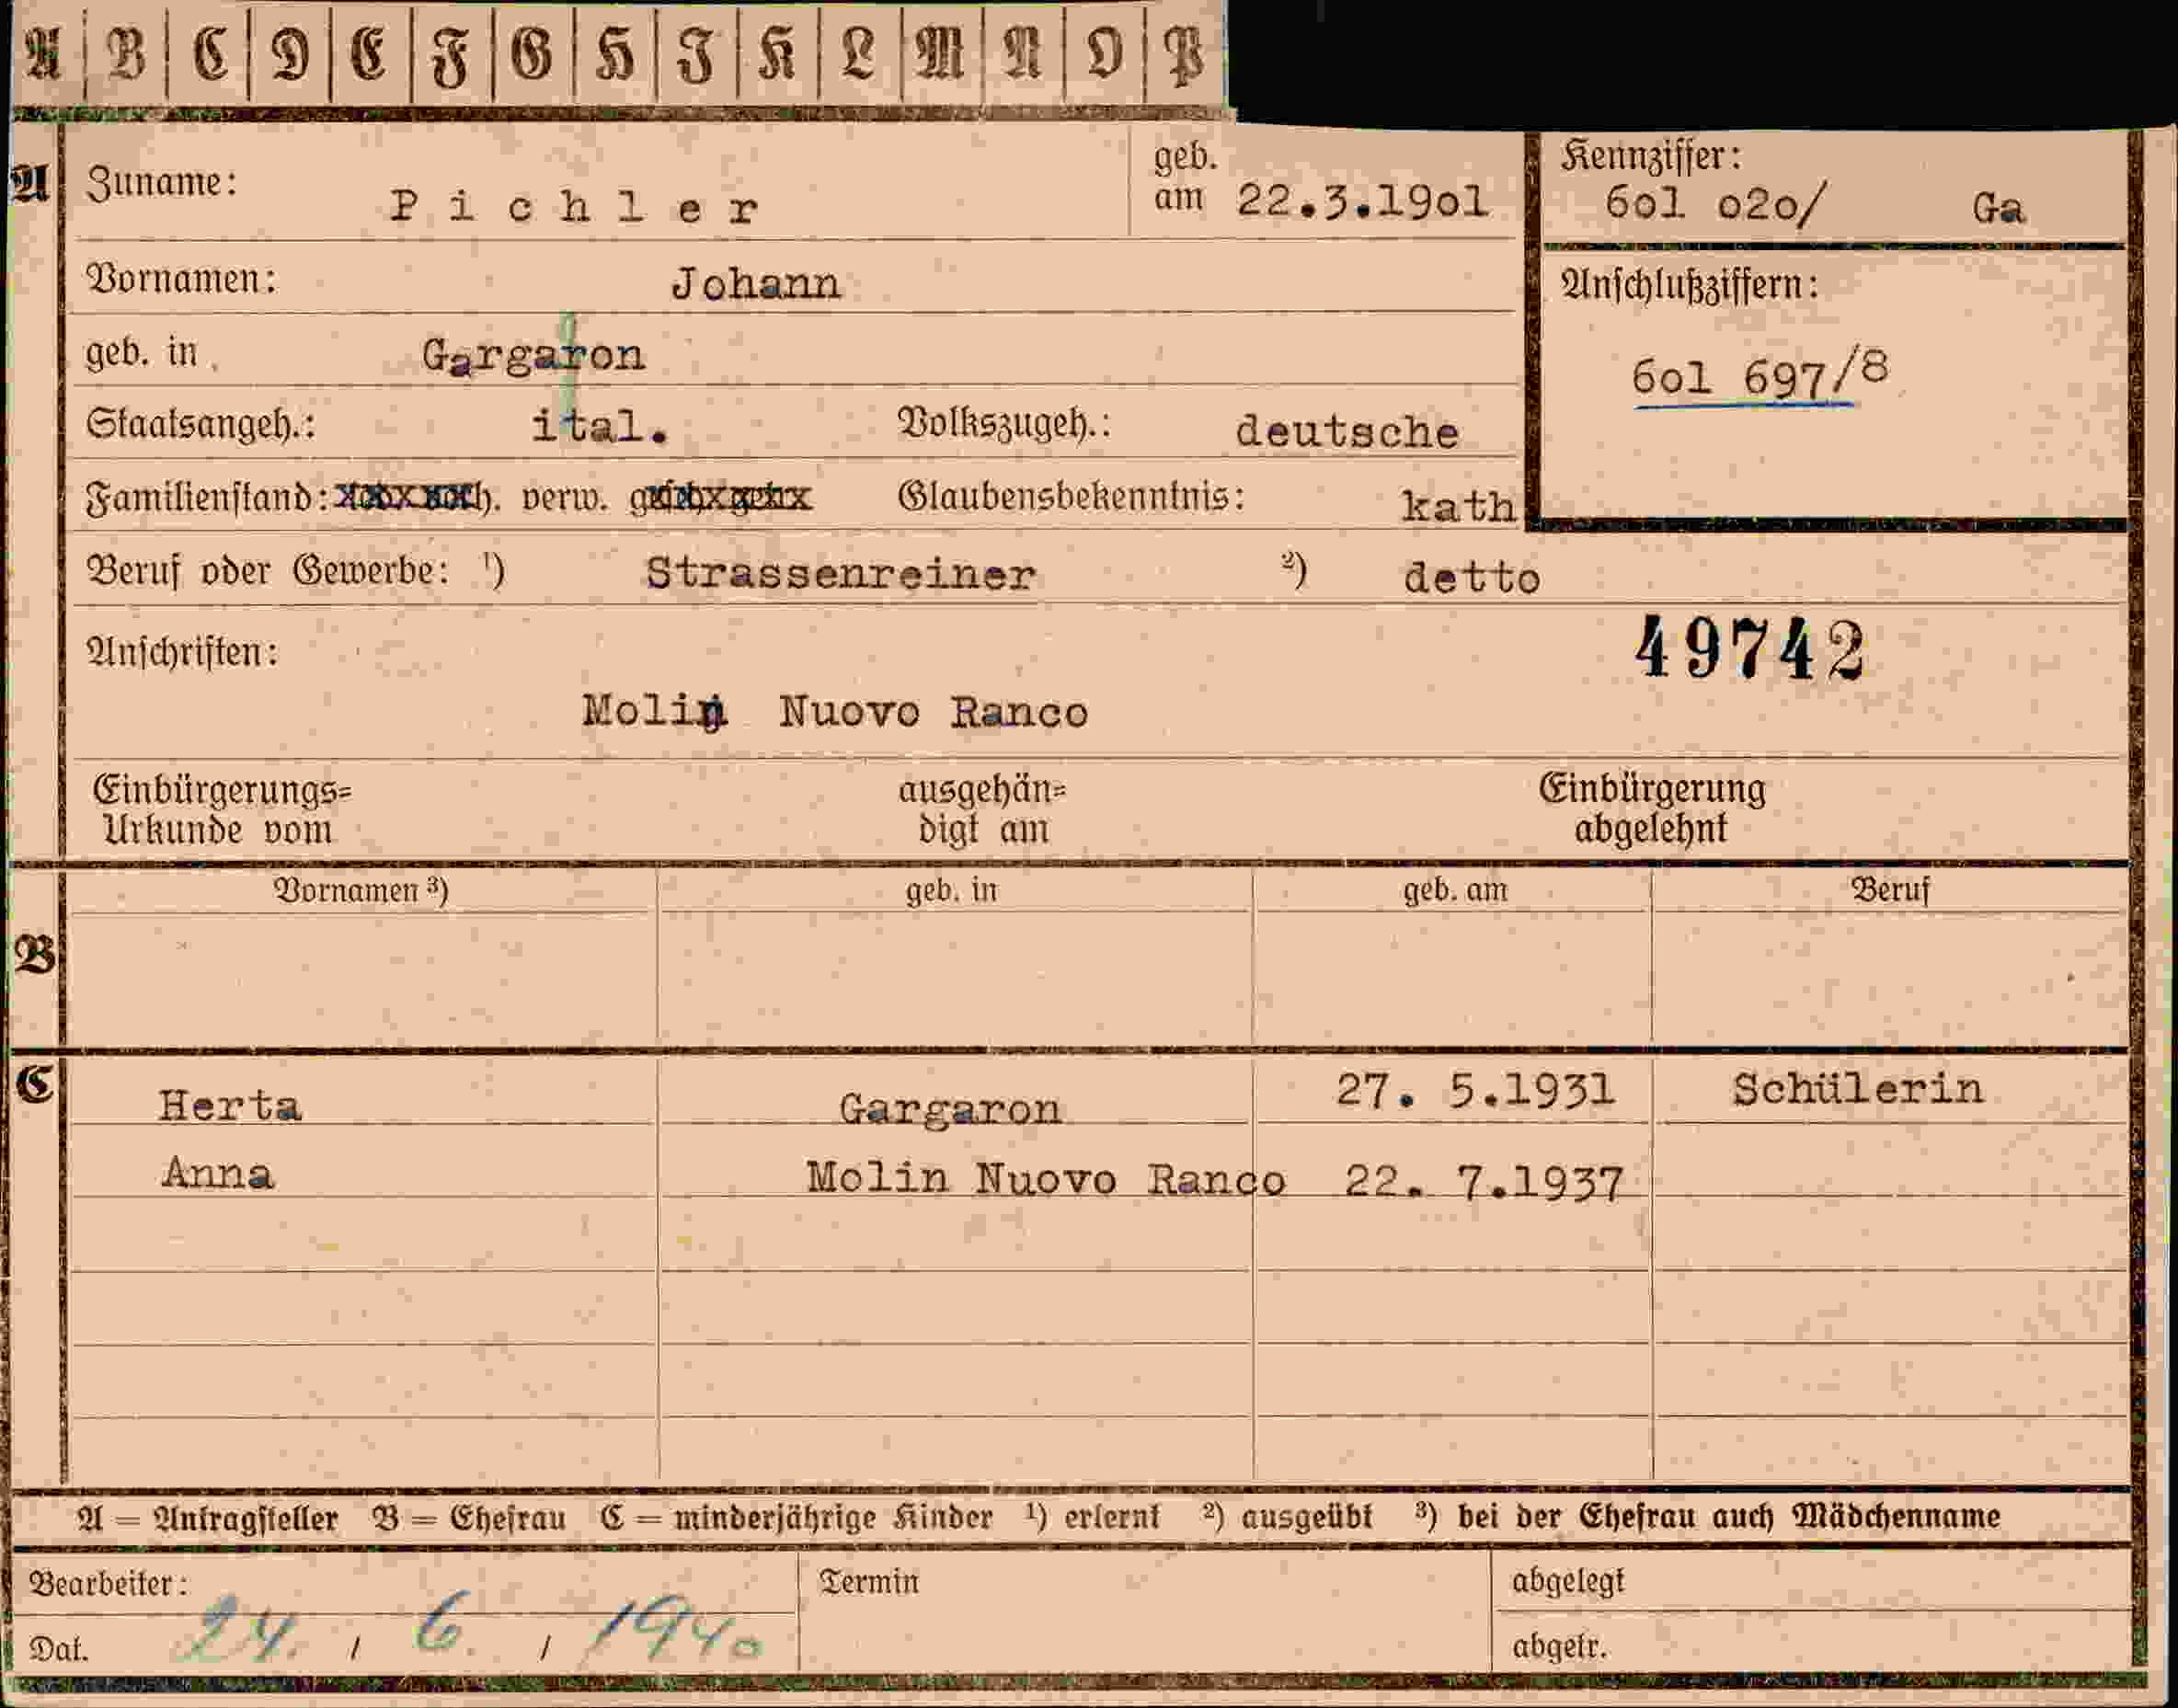 A B C D E F G H I K L M N O P
A Zuname: Pichler geb. am 22.3.19o1 Kennziffer: 6o1 o2o/ Ga
Vornamen: Johann Anschlußziffern:
geb. in Gargaron 6o1 697/8
Staatsangeh.: ital. Volkszugeh.: deutsche
Familienstand: verw. Glaubensbekenntnis: kath
Beruf oder Gewerbe: ¹) Strassenreiner ²) detto
Anschriften: 49742
Molin Nuovo Ranco
Einbürgerungs= ausgehän= Einbürgerung
Urkunde vom digt am abgelehnt
Vornamen ³) geb. in geb. am Beruf
B
C Herta Gargaron 27. 5.1931 Schülerin
Anna Molin Nuovo Ranco 22. 7.1937
A = Antragsteller B = Ehefrau C = minderjährige Kinder ¹) erlernt ²) ausgeübt ³) bei der Ehefrau auch Mädchenname
Bearbeiter: Termin abgelegt
Dat. 24. / 6. / 1940 abgetr.